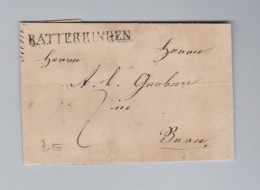 BATTERKINDEN
Herrn Herrn
A. L. Grabern
in
Bern